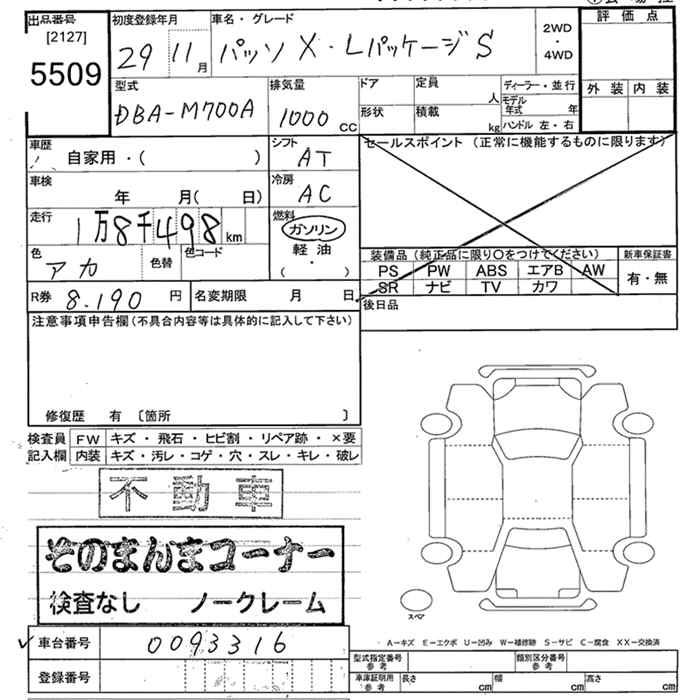 出品番号
[2127]
5509
初度登録年月
29 11月
車名・グレード
パッソ X・Lパッケージ S
2WD
4WD
評価点
外装 内装
型式
DBA-M700A
排気量
1000 cc
ドア
形状
定員
人
積載
kg
ディーラー・並行
モデル年式 年
ハンドル 左・右
車歴
自家用・( )
シフト
AT
セールスポイント (正常に機能するものに限ります)
車検
年 月( 日)
冷房
AC
走行
1万8千498km
燃料
ガソリン
軽油
( ・ )
色
アカ
色替
色コード
装備品 (純正品に限り〇をつけてください)
PS PW ABS エアB AW
SR ナビ TV カワ
新車保証書
有・無
R券 8.190 円
名変期限 月 日
後日品
注意事項申告欄(不具合内容等は具体的に記入して下さい)
修復歴 有 〔箇所 〕
検査員 FW キズ・飛石・ヒビ割・リペア跡・×要
記入欄 内装 キズ・汚レ・コゲ・穴・スレ・キレ・破レ
不動車
そのまんまコーナー
検査なし ノークレーム
スペア
車台番号 0093316
登録番号
A-キズ E-エクボ U-凹み W-補修跡 S-サビ C-腐食 XX-交換済
型式指定番号 参考
類別区分番号 参考
車庫証明用 参考 長さ cm 幅 cm 高さ cm